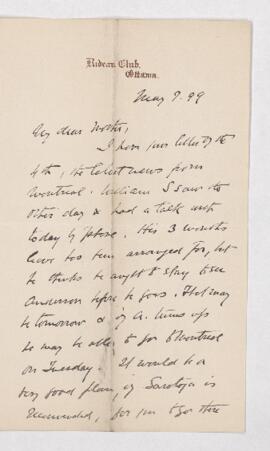 Rideau Club,
Ottawa.
May 7. 99
My dear Mother,
I have your letter of the
4th, the latest news from
Montreal. William I saw the
other day & had a talk with
today by phone. His 3 months
leave has been arranged for, but
he thinks he ought to stay & see
Anderson before he goes. That may
be tomorrow & if A. turns up
he may be able to go to Montreal
on Tuesday. It would be a
very good plan, if Saratoga is
recommended, for you to go there